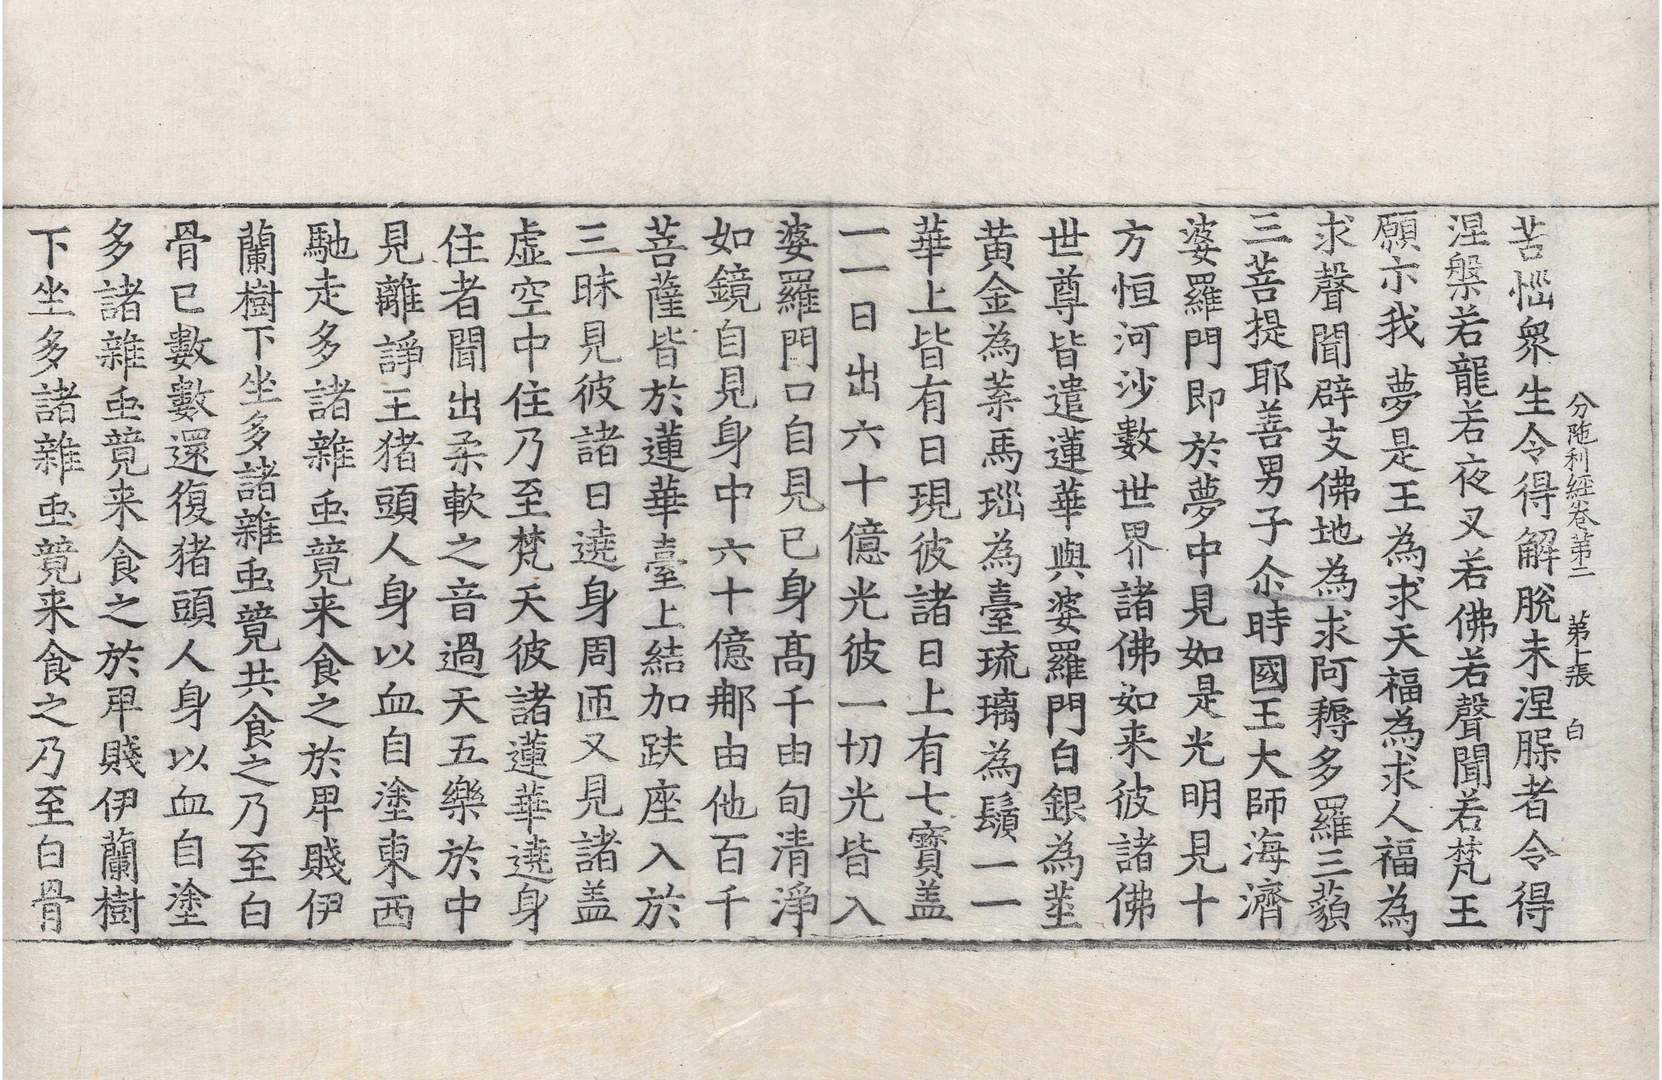 分陁利經卷第二 第十張 白
苦惱衆生令得解脫未涅縣者令得
涅槃若龍若夜叉若佛若聲聞若梵王
願示我夢是王為求天福為求人福為
求聲聞辟支佛地為求阿耨多羅三藐
三菩提耶善男子尒時國王大師海濟
婆羅門即於夢中見如是光明見十
方恒河沙數世界諸佛如来彼諸佛
世尊皆遣蓮華與婆羅門白銀為莖
黄金為葉馬瑙為臺琉璃為鬚一一
華上皆有日現彼諸日上有七寶盖
一一日出六十億光彼一切光皆入
婆羅門口自見已身髙千由旬清淨
如鏡自見身中六十億那由他百千
菩薩皆於蓮華臺上結加趺座入於
三昧見彼諸日遶身周匝又見諸盖
虛空中住乃至梵天彼諸蓮華遶身
住者聞出柔軟之音過天五樂於中
見離諍王猪頭人身以血自塗東西
馳走多諸雜䖝競来食之於卑賤伊
蘭樹下坐多諸雜䖝競共食之乃至白
骨已數數還復猪頭人身以血自塗
多諸雜䖝競来食之於卑賤伊蘭樹
下坐多諸雜䖝競来食之乃至白骨